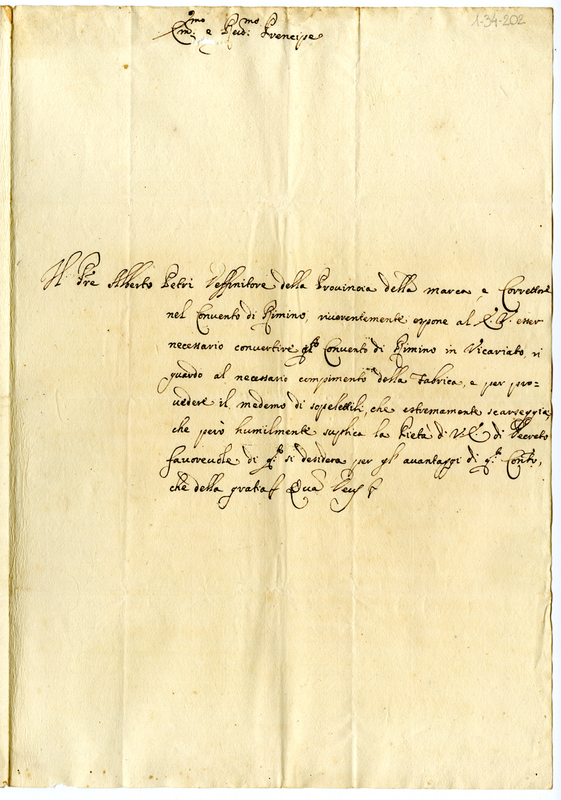 1-34-202
Em.mo e Reu.mo Prencipe
Il Pre Alberto Petri Deffinitore della Prouincia della marca, e Correttore
nel Conuento di Rimino, riuerentemente espone al E.V. esser
necessario conuertire q.to Conuento di Rimino in Vicariato, ri
guardo al necessario compimento della Fabrica, e per pro=
uedere il medemo di sopelettili, che estremamente scarseggia,
che però humilmente suplica la Pietà di V.E. di Decreto
fauoreuole di q.to si desidera per gl'auantaggi di q.to Conto,
che della gratia Qua Deus